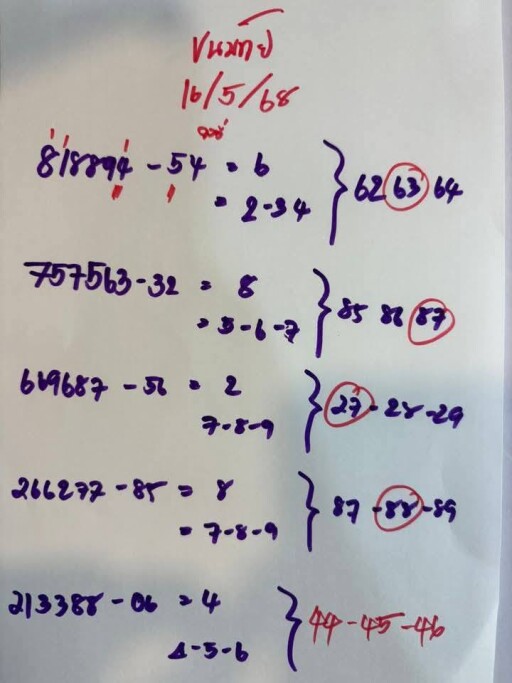 16/5/68
818894 - 54 = 6
= 2-34 } 62 63 64
757563-32 = 8
= 5-6-7 } 85 86 87
669687 - 56 = 2
7-8-9 } 27-28-29
266277-85 = 8
= 7-8-9 } 87-88-89
213388-06 = 4
4-5-6 } 44-45-46